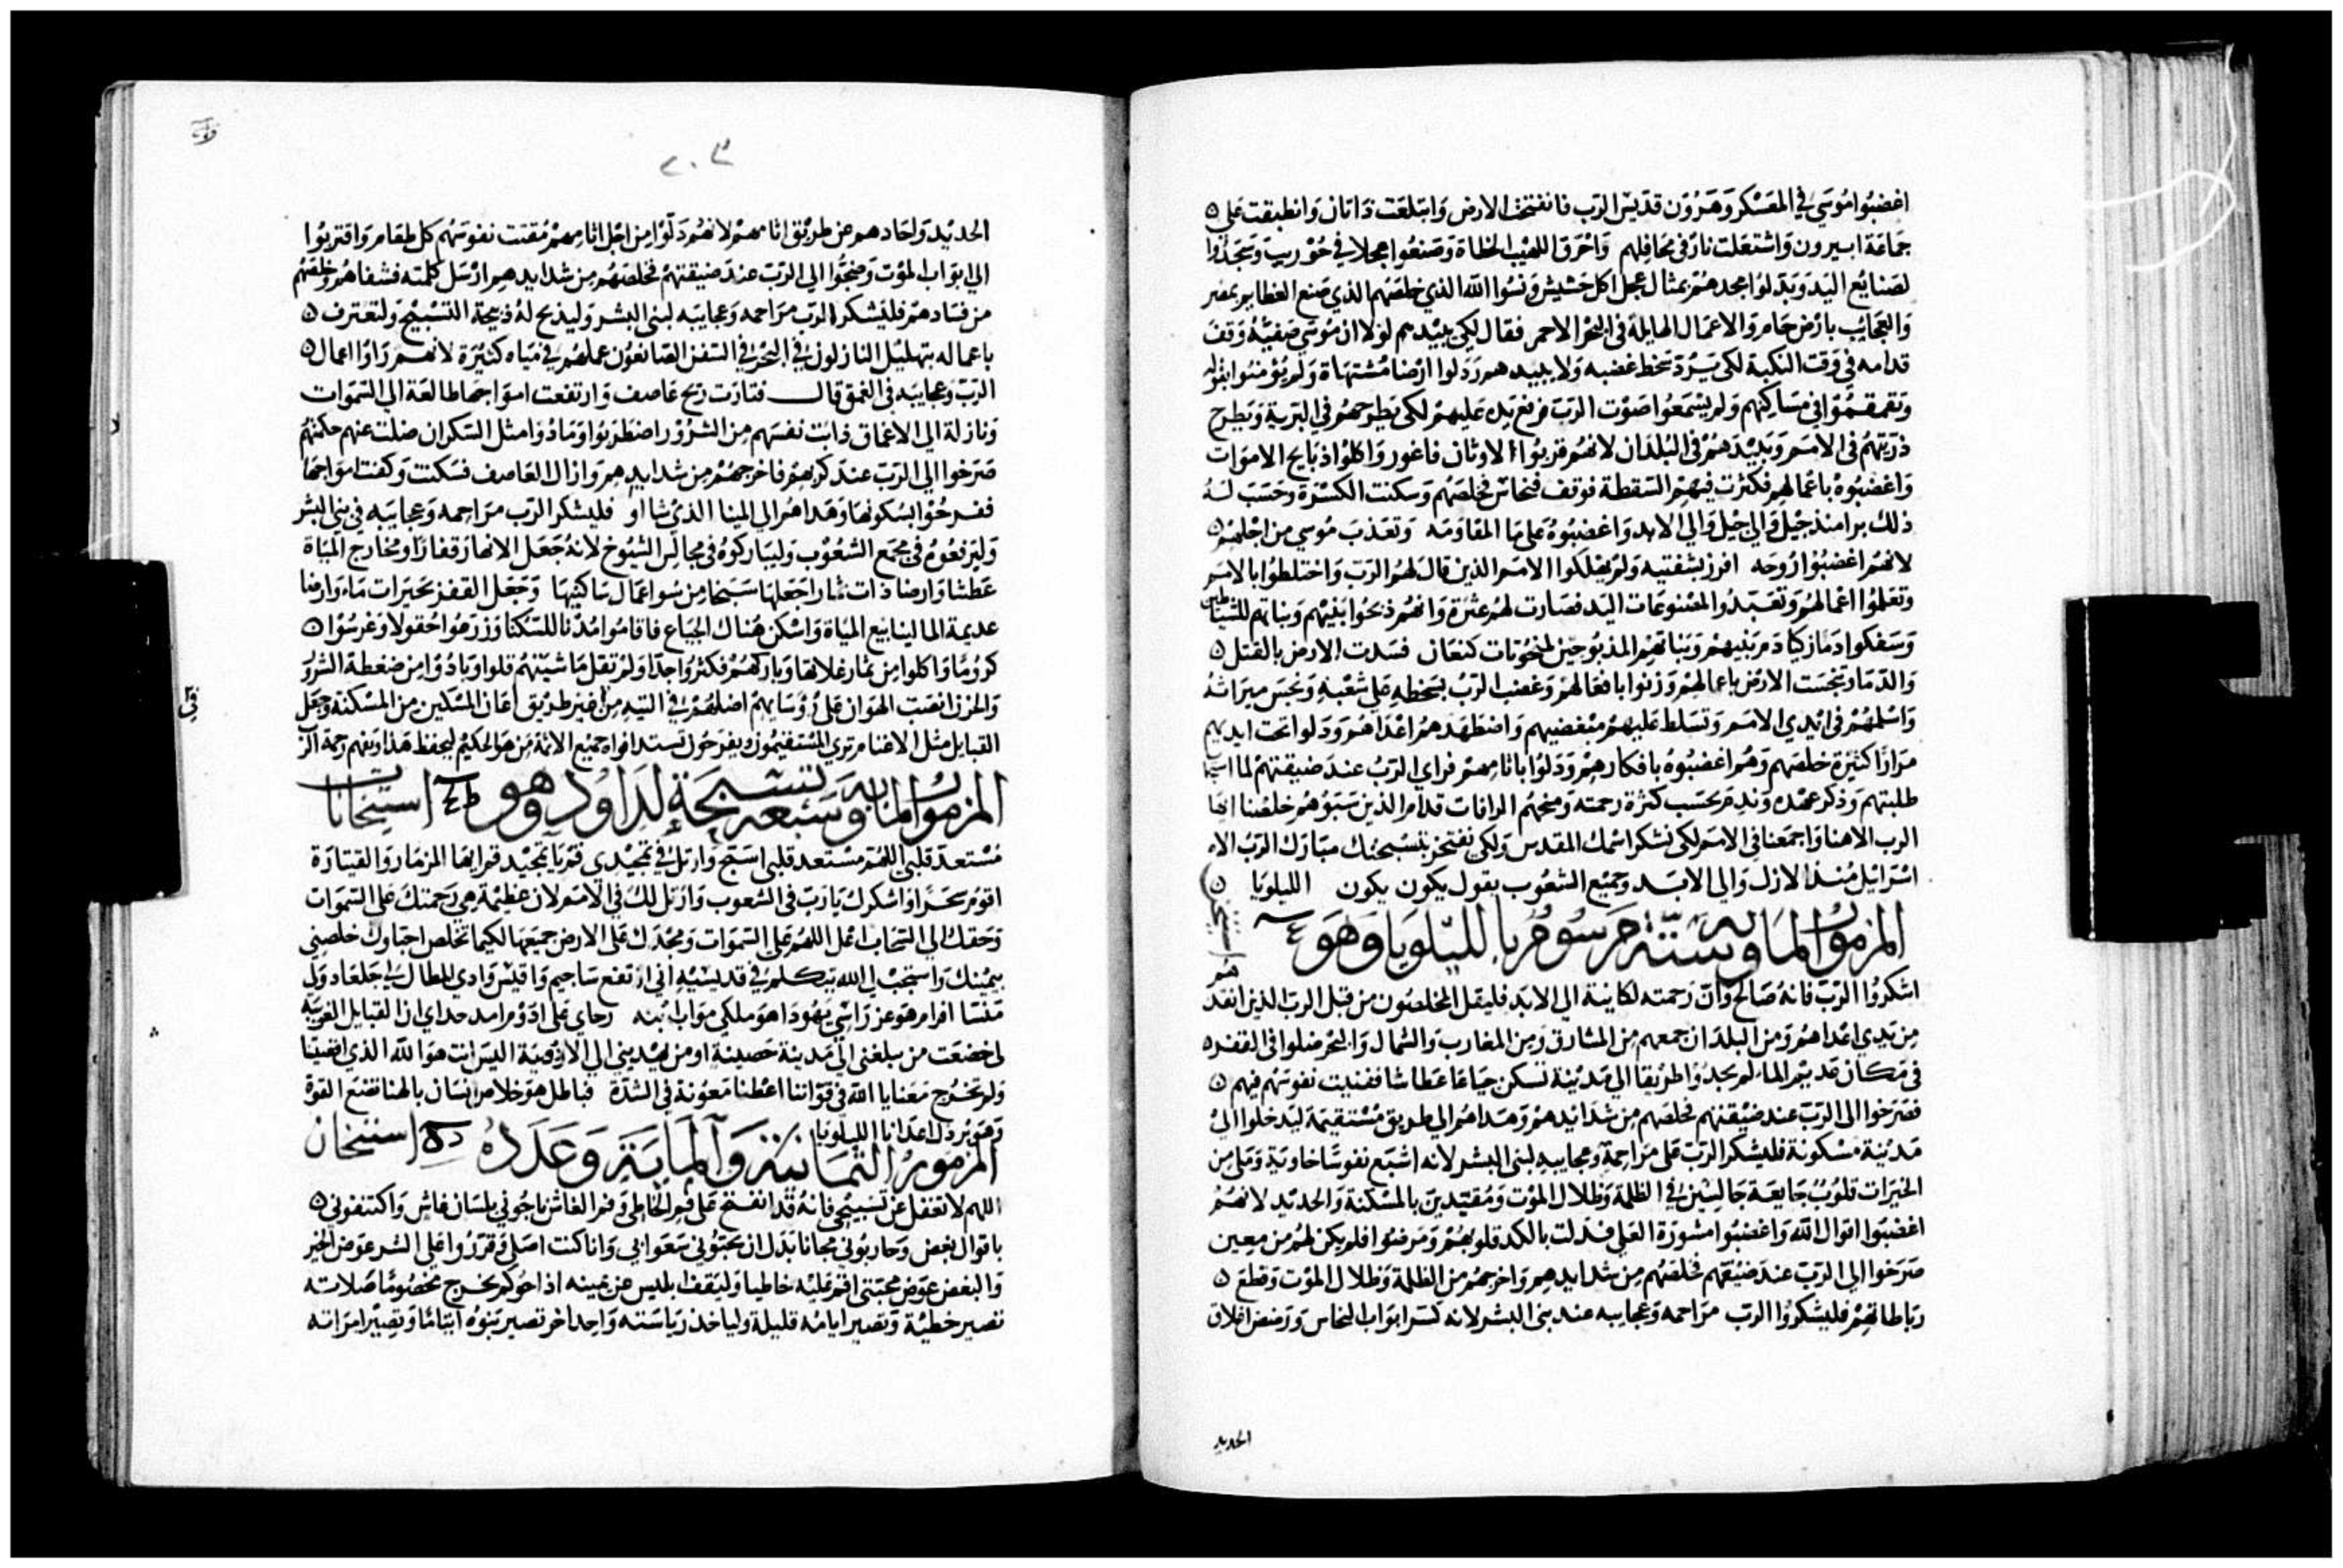 اغضبوا موسي في المعسكر وهرون قديس الرب فانفتحت الارض وابتلعت داتان وانطبقت علي
جماعة ابيرون واشتعلت نار في محافلهم واحرق اللهيب الخطاة وصنعوا عجلا في حوريب وسجدوا
لصنايع اليد وبدلوا مجدهم بمثال عجل اكل حشيش ونسوا الله الذي خلصهم الذي صنع العظايم بمصر
والعجايب بارض حام والاعمال الهايلة في البحر الاحمر فقال لكي يبيدهم لولا ان موسي صفيه وقف
قدامه في وقت النكبة لكي يرد سخط غضبه ولا يبيدهم ورذلوا ارضا مشتهاة ولم يومنوا بقوله
وتقمقموا في مساكنهم ولم يسمعوا صوت الرب فرفع يده عليهم لكي يطرحهم في البرية ويطرح
ذريتهم في الامم ويبيدهم في البلدان لانهم قربوا الاوثان فاغور واكلوا ذبايح الاموات
واغضبوه باعمالهم فكثرت فيهم السقطة فوقف فنحاس فخلصهم وسكنت الكسرة وحسب له
ذلك برا منذ جيل والي جيل والي الابد واغضبوه علي ما المقاومه وتعذب موسي من اجلهم
لانهم اغضبوا روحه افرز بشفتيه ولم يهلكوا الامم الذين قال لهم الرب واختلطوا بالامم
وتعلموا اعمالهم وتعبدوا لمصنوعات اليد فصارت لهم عثرة وانهم ذبحوا بنيهم وبناتهم للشياطين
وسفكوا دما زكيا دم بنيهم وبناتهم المذبوحين لمنحوتات كنعان فسدت الارض بالقتل
والدما وتنجست الارض باعمالهم وزنوا بافعالهم وغضب الرب بسخطه علي شعبه ونجس ميراثه
واسلمهم في ايدي الامم وتسلط عليهم مبغضيهم واضطهدهم اعداهم وذلوا تحت ايديهم
مرارا كثيرة خلصهم وهم اغضبوه بافكارهم وذلوا باثامهم فراي الرب عند ضيقتهم لما
طلبتهم وذكر عهده وندم بحسب كثرة رحمته ومنحهم الرافات قدام الذين سبوهم خلصنا ايها
الرب الاهنا واجمعنا في الامم لكي نشكر اسمك المقدس ولكي نفتخر بتسبحتك مبارك الرب الاه
اسرائيل منذ الازل والي الابد وجميع الشعوب يقول يكون يكون الليلويا
المزمور الماية وستة مرسوم بالليلويا وهو
اشكروا الرب فانه صالح وان رحمته لكاينة الي الابد فليقل المخلصون من قبل الرب الذين انقذ
من يدي اعداهم ومن البلدان جمعهم من المشارق ومن المغارب والشمال والبحر ضلوا في القفره
في مكان عديم الماء لم يجدوا طريقا الي مدينة تسكن جياعا عطاشا ففنيت نفوسهم فيهم
فصرخوا الي الرب عند ضيقتهم فخلصهم من شدايدهم وهداهم الي طريق مستقيمة ليدخلوا الي
مدينة مسكونة فليشكر الرب علي مراحمه وعجايبه لبني البشر لانه اشبع نفوسا خاوية وملي من
الخيرات قلوب جايعة جالسين في الظلمة وظلال الموت ومقيدين بالمسكنة والحديد لانهم
اغضبوا اقوال الله واغضبوا مشورة العلي فذلت بالكد قلوبهم ومرضوا فلم يكن لهم من معين
صرخوا الي الرب عند ضيقهم فخلصهم من شدايدهم واخرجهم من الظلمة وظلال الموت وقطع
رباطاتهم فليشكروا الرب مراحمه وعجايبه عند بني البشر لانه كسر ابواب النحاس ورضض اغلاق
الحديد
٢٠٣
الحديد ولحادهم عن طريق اثامهم لانهم ذلوا من اجل اثامهم مقتت نفوسهم كل طعام واقتربوا
الي ابواب الموت وضجوا الي الرب عند ضيقتهم فخلصهم من شدايدهم ارسل كلمته فشفاهم وخلصهم
من فسادهم فليشكر الرب مراحمه وعجايبه لبني البشر وليذبح له ذبيحة التسبيح ولتعترف
باعماله بتهليل النازلون في البحر في السفن الصانعون عملهم في مياه كثيرة لانهم راوا اعمال
الرب وعجايبه في العمق قال فثارت ريح عاصف وارتفعت امواجها طالعة الي السموات
ونازلة الي الاعماق ذابت نفسهم من الشرور اضطربوا ومادوا مثل السكران ضلت عنهم حكمتهم
صرخوا الي الرب عند كربهم فاخرجهم من شدايدهم وازال العاصف فسكنت وكفت امواجها
ففرحوا بسكونها وهداهم الي المينا الذي شااو فليشكر الرب مراحمه وعجايبه في بني البشر
وليرفعوه في مجمع الشعوب وليباركوه في مجالس الشيوخ لانه جعل الانهار قفارا ومخارج المياة
عطشا وارضا ذات ثمار اجعلها سبخا من سو اعمال ساكنيها وجعل القفز بحيرات ماء وارضا
عديمة الما لينابيع المياة واسكن هناك الجياع فاقاموا مدنا للسكنا وزرعوا حقولا وغرسوا
كروما واكلوا من ثمار غلاتها وباركهم فكثروا جدا ولم تقل ماشيتهم قلوا وبادوا من ضغطة الشرور
والحزن انصب الهوان علي روسايهم اضلهم في التيه من غير طريق اعان المسكين من المسكنة وجعل
القبايل مثل الاغنام تري المستقيمون ويفرحون تستد افواه جميع الاثمة من هو الحكيم ليحفظ هذا ويفهم رحمة الرب
المزمور الماية وسبعه تسبحة لداود وهو استيخانات
مستعد قلبي اللهم مستعد قلبي اسبح وارتل في تمجيدي قم يا تمجيد قم ايها المزمار والقيثارة
اقوم سحرا واشكرك يا رب في الشعوب وارتل لك في الامم لان عظيمة هي رحمتك علي السموات
وحقك الي السحاب اعل اللهم علي السموات ومجدك علي الارض جميعها لكيما تخلص احباوك خلصني
بيمينك واستجب لي الله تكلم في قديسيه اني ارتفع ساجيم واقيس وادي المظال لي جلعاد ولي
منسا افرام هو عز راسي يهودا هو ملكي مواب ابنه رجاي علي ادوم امد حداي اذا القبايل الغريبة
لي خضعت من يبلغني الي مدينة حصينة او من يهديني الي الادومية اليس انت هو الله الذي اقصيتنا
ولم تخرج معنا يا الله في قواتنا اعطنا معونة في الشدة فباطل هو خلاص انسان بالهنا نصنع القوة
وهو يرذل اعدانا الليلويا
المزمور الثمانية والماية وعدده استيخان
اللهم لا تغفل عن تسبيحي فانه قد انفتح علي فم الخاطي وفم الغاش ناجوني بلسان غاش واكتنفوني
باقوال بغض وحاربوني مجانا بدل ان يحبوني سعوا بي وانا كنت اصلي وقرروا علي الشر عوض الخير
والبغض عوض محبتي اقم عليه خاطيا وليقف ابليس عن يمينه اذا حوكم يخرج مخصوما صلاته
تصير خطية وتصير ايامه قليلة ولياخذ رياسته واحد اخر تصير بنوه ايتاما وتصير امراته